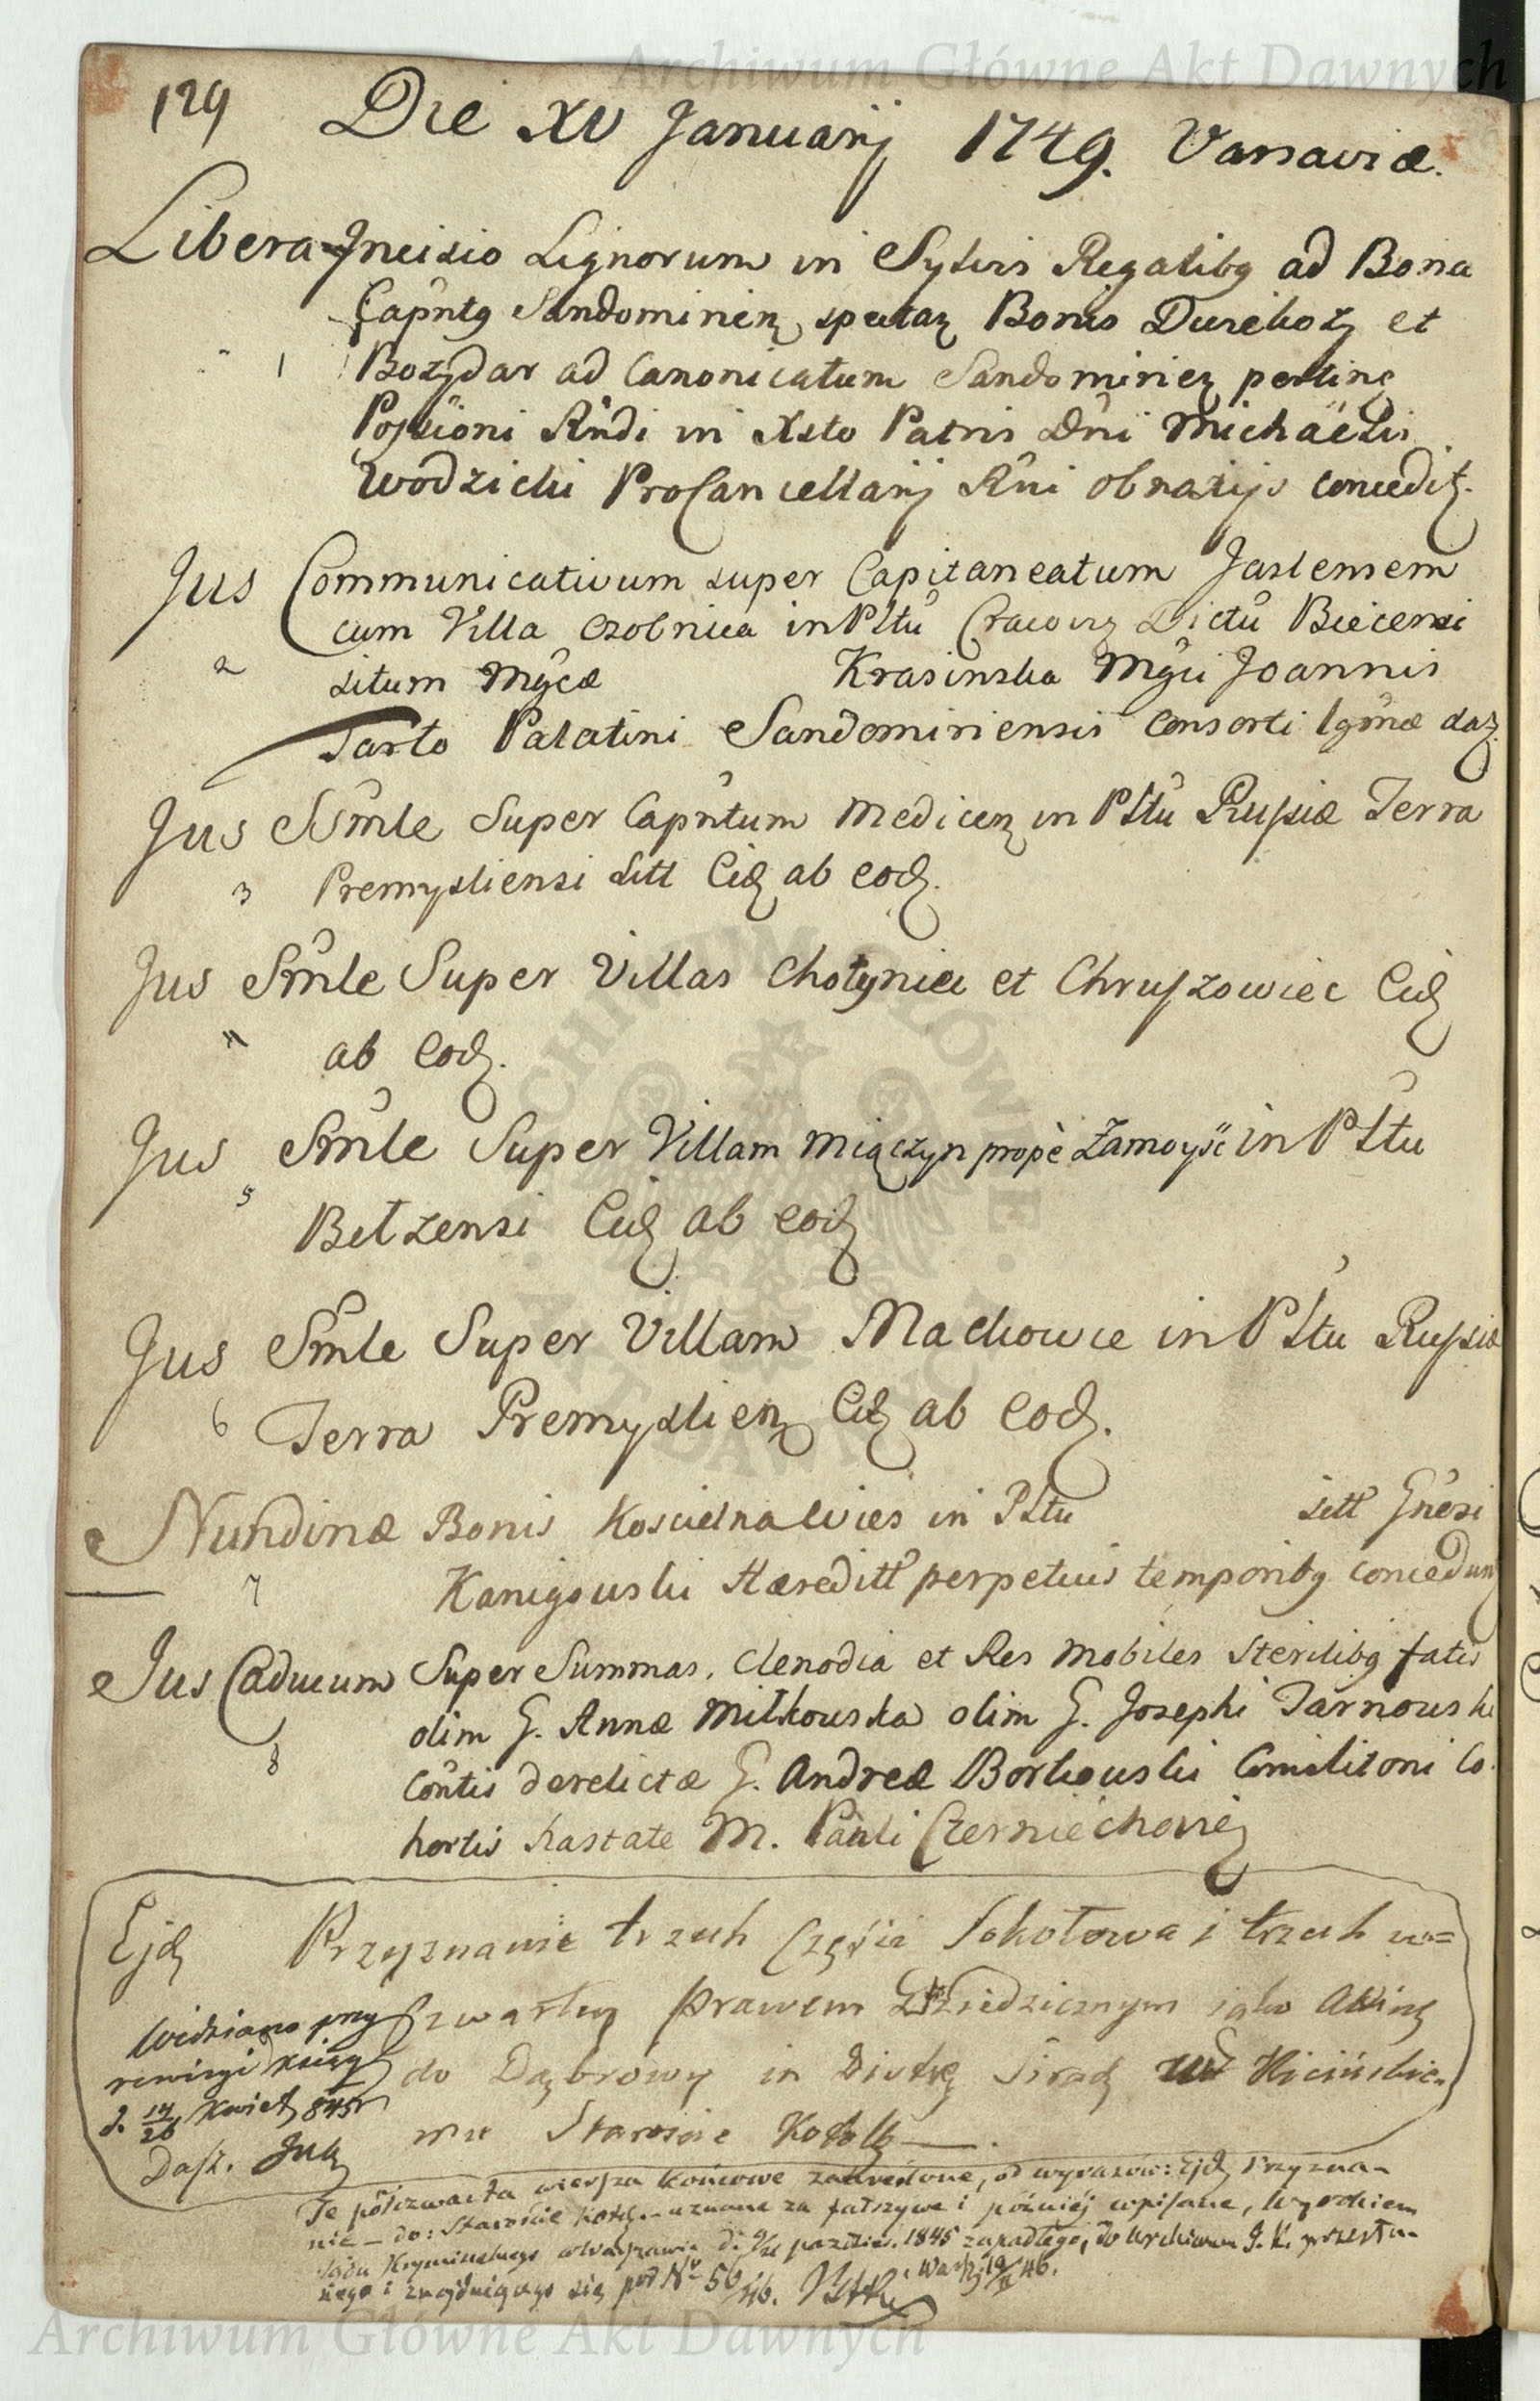 Archiwum Główne Akt Dawnych
129 Die XV Januarij 1749. Varsaviæ.
Libera Incisio Lignorum in Sylvis Regalibg ad Bona
Capntg Sandomirien spectan Bonis Dwikoz et
1 Bozydar ad Canonicatum Sandomirien perting
Possioni Rndi in Xsto Patris Dni Michaëlis
Wodzicki ProCancellarij Rni
Jus Communicativum super Capitaneatum Jaslensem
cum Villa Osobnica in Pltu Cracov Dictu Biecensi
2 situm Mgcæ Krasinska Mgci Joannis
Tarło Palatini Sandomiriensis Consorti
Jus Smle Super Capntum Medicen in Pltu Russiæ Terra
3 Premysliensi sitt Eid ab eod.
Jus Smle Super Villas Chotyniec et Chruszowiec Eid
4 ab eod.
Jus Smle Super Villam Miączyn propè Zamoyść in Pltu
5 Bełzensi Eid ab eod
Jus Smle Super Villam Mackowce in Pltu Russiæ
6 Terra Premyslien Eid ab eod.
Nundinæ Bonis Koscielna Wies in Pltu sitt Gnesi
7 Kanigowski Hæreditt perpetuis temporibg concedun
Jus Caducum Super Summas, Clenodia et Res Mobiles sterilibg fatis
olim G. Annæ Miłkowska olim G. Josephi Tarnowski
8 Contis derelictæ G. Andreæ Borkowski Comilitoni Co
hortis hastatæ M. Pauli
Ejd Przyznanie trzech Części Sokołowa i trzech w=
Czwartey Prawem Dziedzicznym iako
do Dąbrowy in Sirad Kicińskie=
mu Staroście
Widziano przy
rewizyi ksiąg
d. 14/26 Kwiet 845 r
Te półczwarta wiersza końcowe zakreślone, od wyrazów: Ejd Przyzna-
nie – do: Staroście – uznane za fałszywe i później wpisane, Wyrokiem
Sądu Kryminalnego w Warszawie d. paździer. 1845 zapadłego, do Archiwum
nego i znajdującego się pod N° 56/46.
Archiwum Główne Akt Dawnych